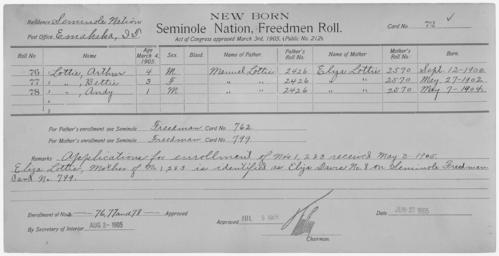 NEW BORN
Residence Seminole Nation
Seminole Nation, Freedmen Roll.
Card No. 72
Post Office Emahaka, I.T.
Act of Congress approved March 3rd, 1905. (Public No. 212).
Roll No Name Age March 4, 1905. Sex. Blood. Name of Father Father's Roll No. Name of Mother Mother's Roll No. Born.
76 Lottie, Arthur 4 M Manuel Lottie 2426 Eliza Lottie 2570 Sept. 12-1900
77 " , Bettie 3 F " " 2426 " " 2570 May 27-1902
78 " , Andy 1 M " " 2426 " " 2570 May 7-1904
For Father's enrollment see Seminole Freedman Card No. 762
For Mother's enrollment see Seminole Freedman Card No. 799
Remarks Applications for enrollment of Nos 1, 2 & 3 received May 2 1905.
Eliza Lottie, Mother of No 1, 2 & 3 is identified as Eliza No. 8 on Seminole Freedman
Card No. 799.
Enrollment of Nos 76, 77 and 78 Approved
By Secretary of Interior AUG 2-1905
Approved 1905
Chairman.
JUN 1905